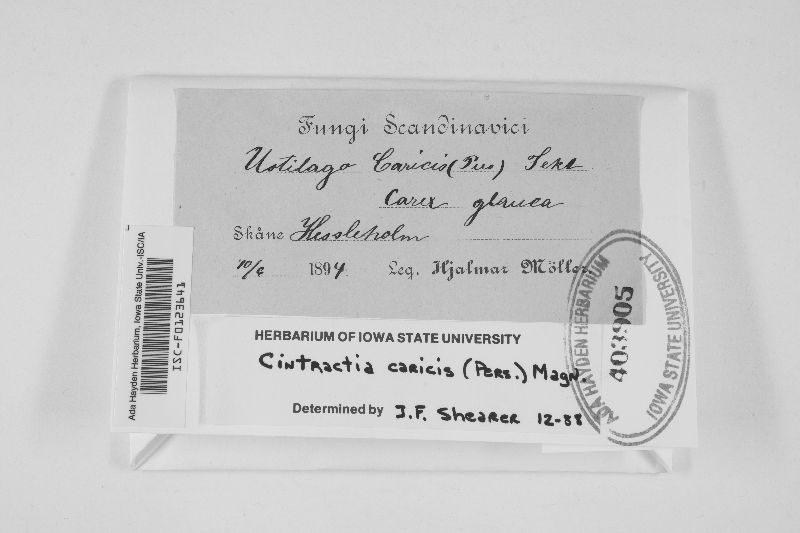 Fungi Scandinavici
Ustilago Caricis (Pers)
Carex glauca
Skåne Hessleholm
10/6 1894 Leg. Hjalmar Möller.
HERBARIUM OF IOWA STATE UNIVERSITY
Cintractia caricis (Pers.) Magn.
Determined by J.F. Shearer 12-88
Ada Hayden Herbarium, Iowa State Univ.-ISC/IA
ISC-F0123641
ADA HAYDEN HERBARIUM
403905
IOWA STATE UNIVERSITY